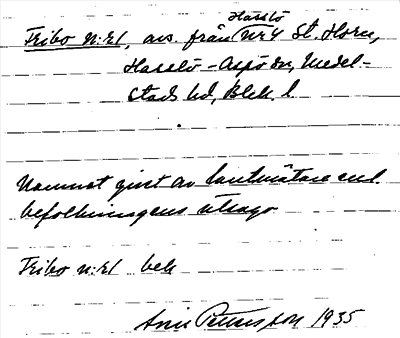 Hasslö
Tribo n:r 1, avs. från nr 4 St. Horn,
Hasslö-Aspö sn, Medel-
stads hd, Blek. l
Namnet givet av lantmätare enl.
befolkningens utsago
Tribo n:r 1 beb
Pettersson 1935